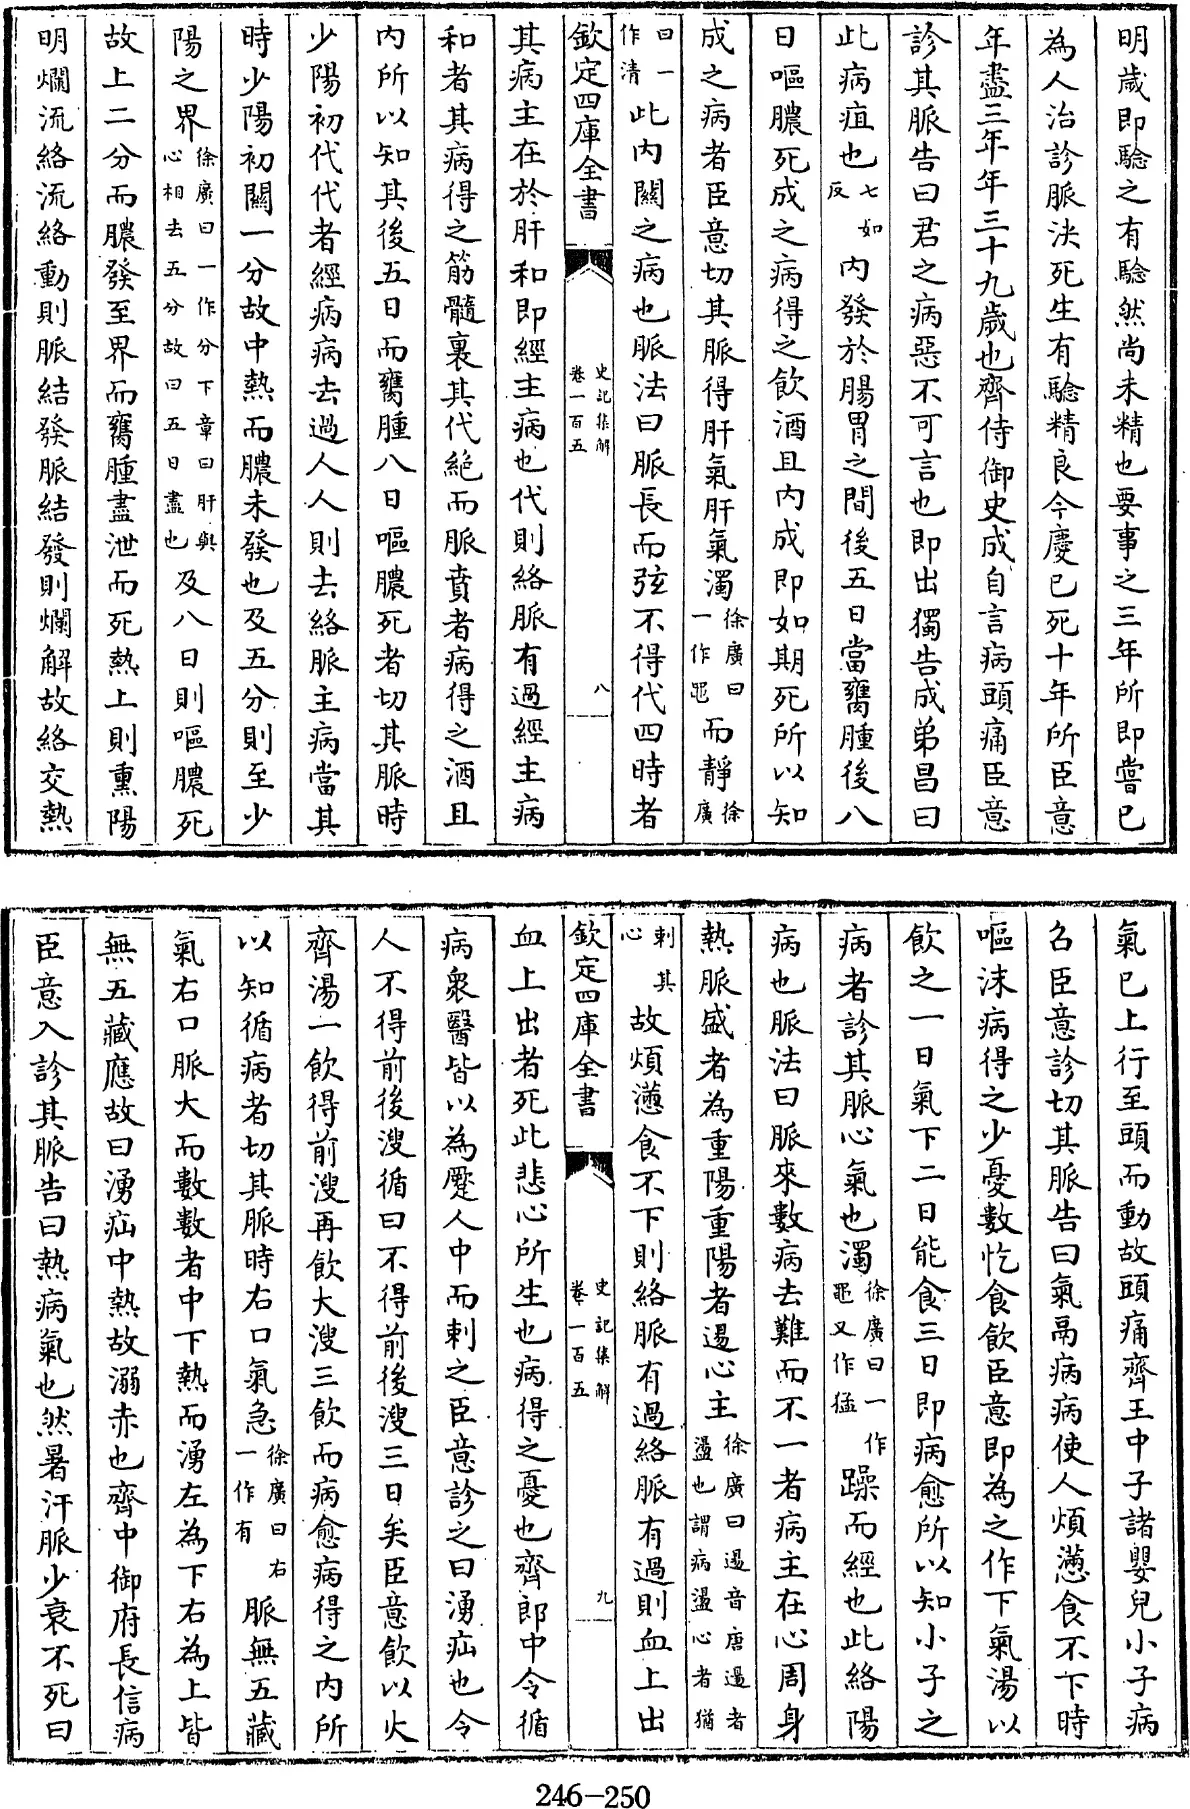 明歲即驗之有驗然尚未精也要事之三年所即嘗已
為人治診脈決死生有驗精良今慶已死十年所臣意
年盡三年年三十九歲也齊侍御史成自言病頭痛臣意
診其脈告曰君之病惡不可言也即出獨告成弟昌曰
此病疽也七如反内發於腸胃之間後五日當臃腫後八
日嘔膿死成之病得之飲酒且内成即如期死所以知
成之病者臣意切其脈得肝氣肝氣濁徐廣曰一作黽而靜徐廣
曰一作清此内關之病也脈法曰脈長而弦不得代四時者
欽定四庫全書 史記集解 卷一百五 八
其病主在於肝和即經主病也代則絡脈有過經主病
和者其病得之筋髓裏其代絕而脈賁者病得之酒且
内所以知其後五日而臃腫八日嘔膿死者切其脈時
少陽初代代者經病病去過人人則去絡脈主病當其
時少陽初關一分故中熱而膿未發也及五分則至少
陽之界徐廣曰一作分下章曰肝與心相去五分故曰五日盡也及八日則嘔膿死
故上二分而膿發至界而臃腫盡泄而死熱上則熏陽
明爛流絡流絡動則脈結發脈結發則爛解故絡交熱
氣已上行至頭而動故頭痛齊王中子諸嬰兒小子病
召臣意診切其脈告曰氣鬲病病使人煩懣食不下時
嘔沫病得之少憂數忔食飲臣意即為之作下氣湯以
飲之一日氣下二日能食三日即病愈所以知小子之
病者診其脈心氣也濁徐廣曰一作黽又作猛躁而經也此絡陽
病也脈法曰脈來數病去難而不一者病主在心周身
熱脈盛者為重陽重陽者逿心主徐廣曰逿音唐逿者盪也謂病盪心者猶
刺其心故煩懣食不下則絡脈有過絡脈有過則血上出
欽定四庫全書 史記集解 卷一百五 九
血上出者死此悲心所生也病得之憂也齊郎中令循
病衆醫皆以為蹷人中而刺之臣意診之曰湧疝也令
人不得前後溲循曰不得前後溲三日矣臣意飲以火
齊湯一飲得前溲再飲大溲三飲而病愈病得之内所
以知循病者切其脈時右口氣急徐廣曰右一作有脈無五藏
氣右口脈大而數數者中下熱而湧左為下右為上皆
無五藏應故曰湧疝中熱故溺赤也齊中御府長信病
臣意入診其脈告曰熱病氣也然暑汗脈少衰不死曰
246-250